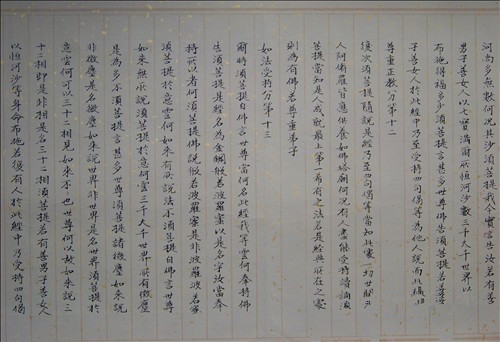 河尚多無數何況其沙須菩提我今實言告汝若有善
男子善女人以七寶滿爾所恒河沙數三千大千世界以
布施得福多不須菩提言甚多世尊佛告須菩提若善
子善女人於此經中乃至受持四句偈等為他人說而此福
尊重正教分第十二
復次須菩提隨說是經乃至四句偈等當知此處一切世間天
人阿修羅皆應供養如佛塔廟何況有人盡能受持讀誦須
菩提當知是人成就最上第一希有之法若是經典所在之處
則為有佛若尊重弟子
如法受持分第十三
爾時須菩提白佛言世尊當何名此經我等云何奉持佛
告須菩提是經名為金剛般若波羅蜜以是名字汝當奉
持所以者何須菩提佛說般若波羅蜜是非波羅
須菩提於意云何如來有所說法不須菩提白佛言世尊
如來無所說須菩提於意云何三千大千世界所有微塵
是為多不須菩提言甚多世尊須菩提諸微塵如來說
非微塵是名微塵如來說世界非世界是名世界須菩提於
意云何可以三十二相見如來不也世尊何以故如來說三
十二相即是非相是名三十二相須菩提若有善男子善女人
以恒河沙等身命布施若復有人於此經中乃受持四句